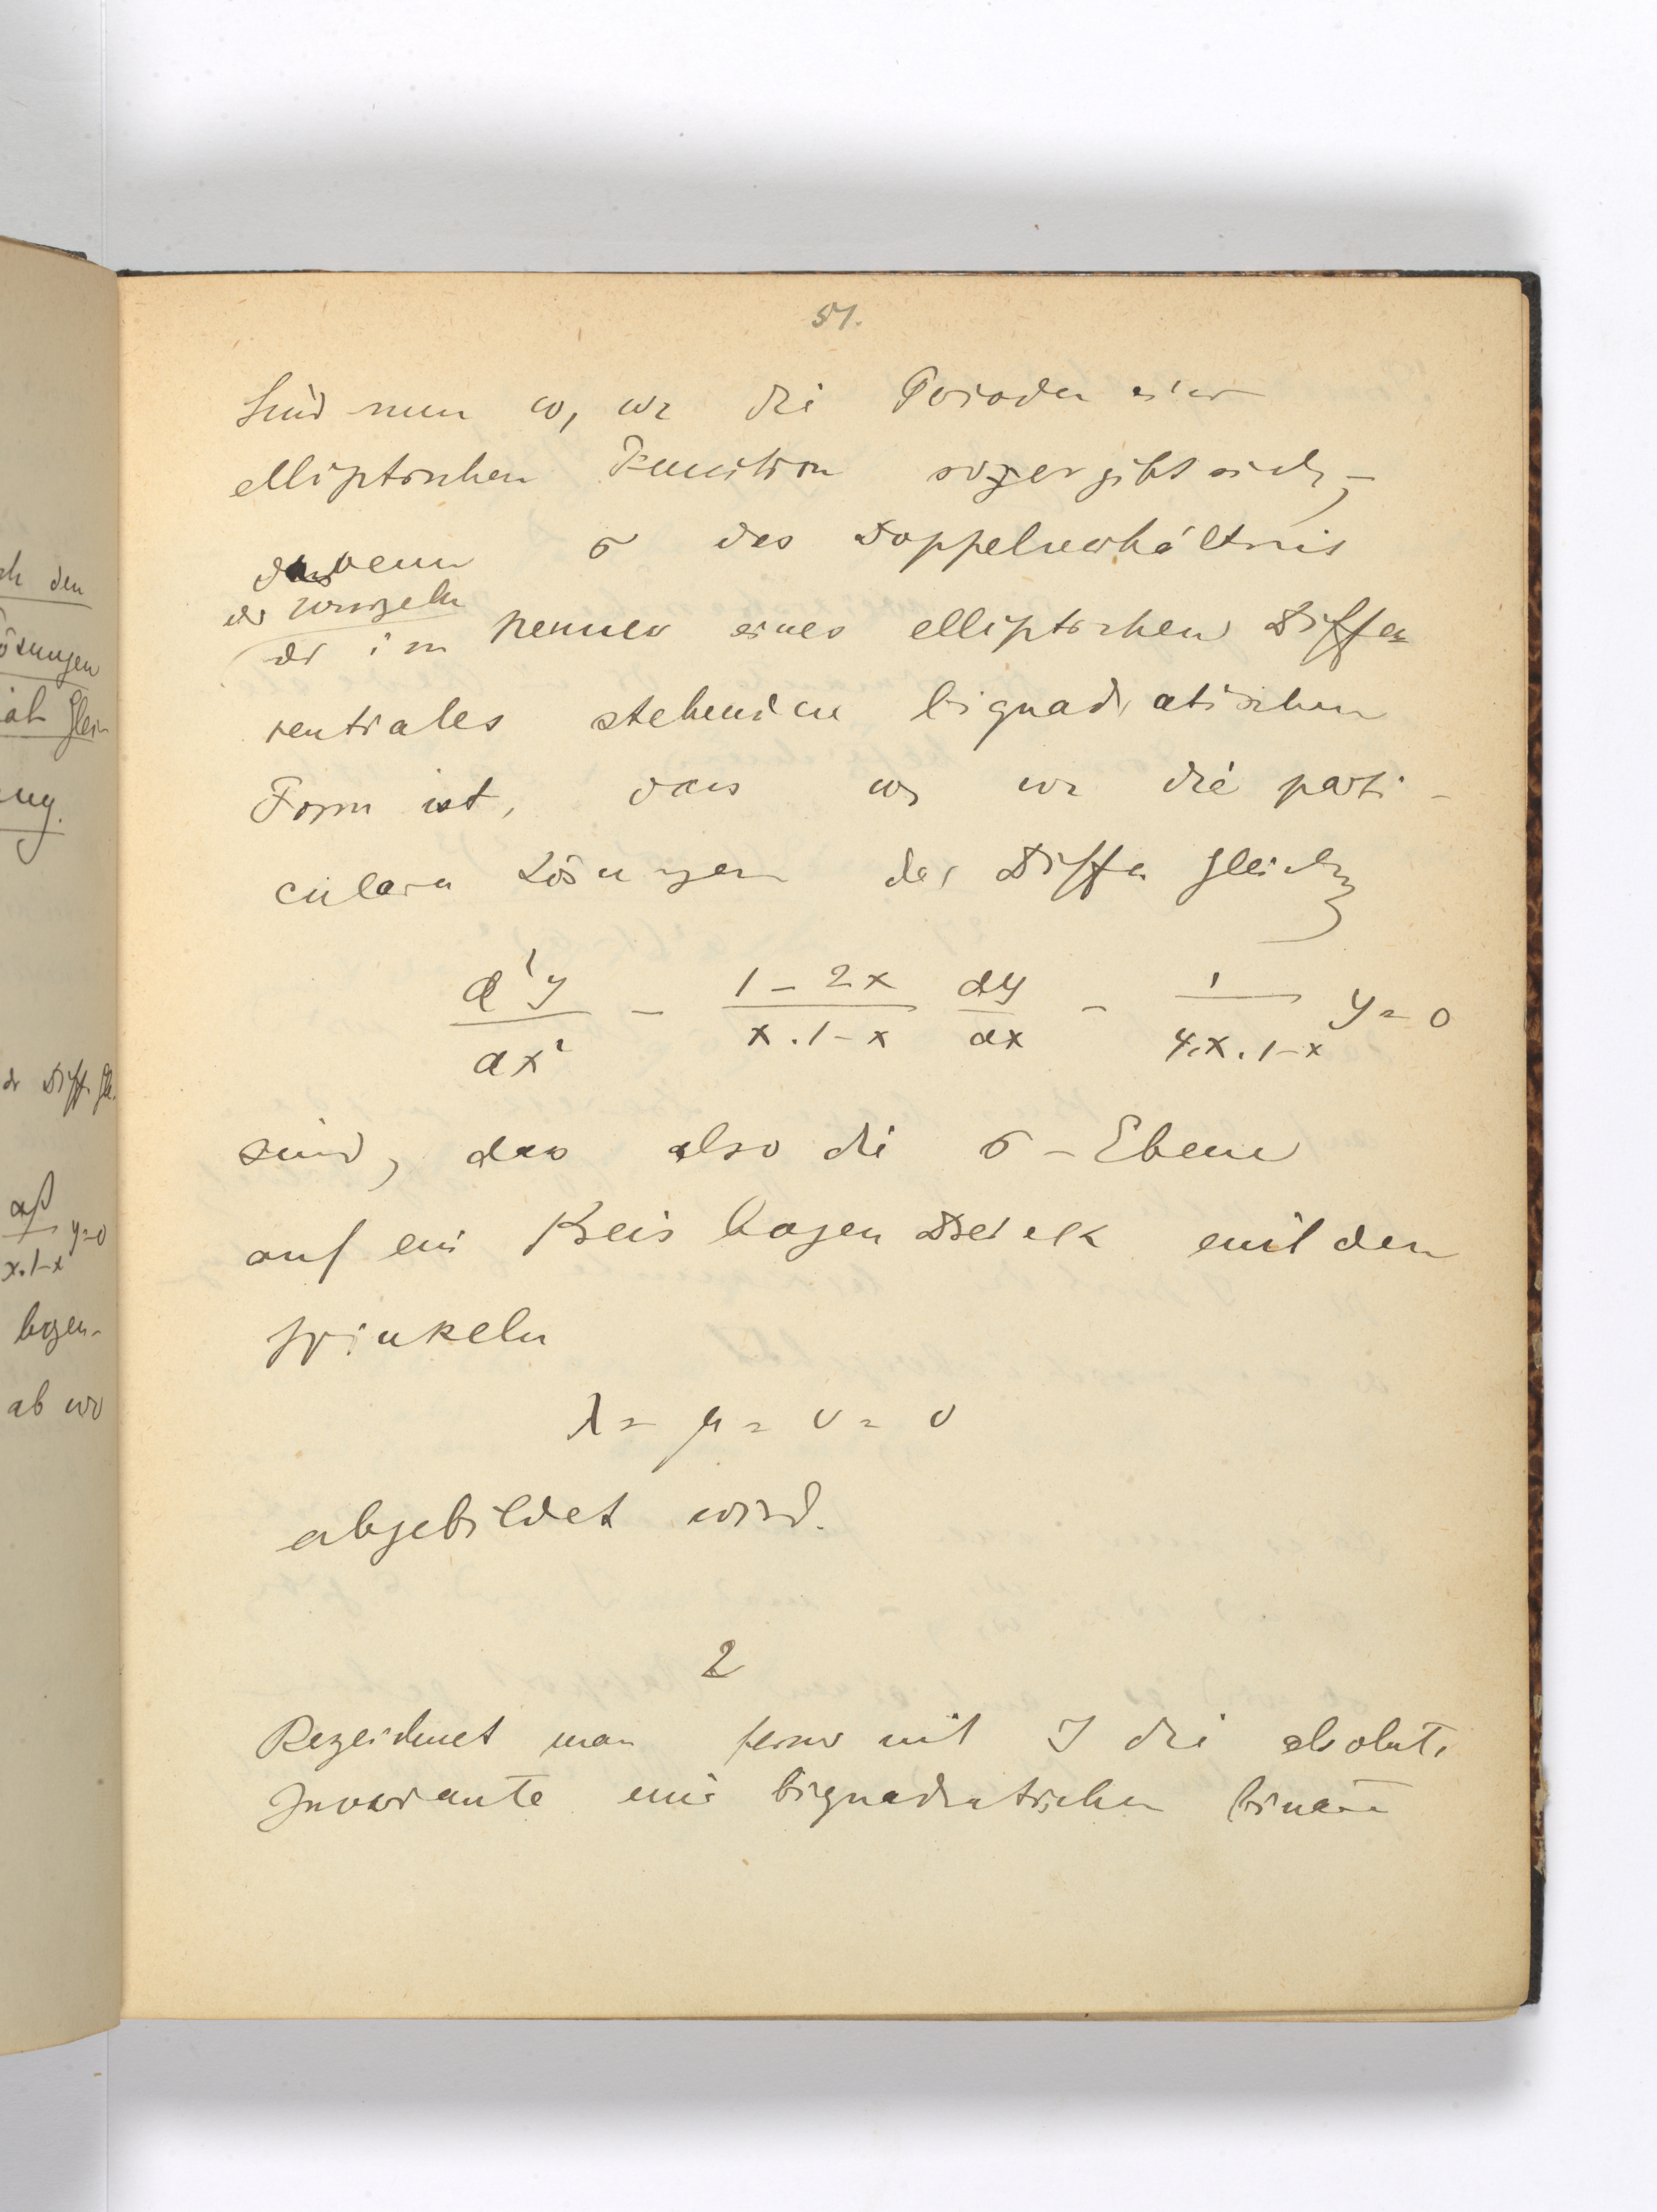 51.
Sind nun ω₁ ω₂ die Perioden einer
elliptischen Function so ergibt sich,
dass wenn σ das Doppelverhältnis
der Wurzeln
der im Nenner eines elliptischen Diffe
rentiales stehenden biquadratischen
Form ist, dass ω₁ ω₂ die parti-
culären Lösungen der Diffe gleich
d²y/dx² - 1-2x/x.1-x dy/dx - 1/4.x.1-x y=0
sind, das also die σ-Ebene
auf ein Kreisbogen Dreieck mit den
Winkeln
λ = μ = ν = 0
abgebildet wird.
2
Bezeichnet man ferner mit J die absolute
Invariante eine biquadratischen binären
ch den
ösungen
ial Glei-
ung.
der Diff. Gl.
αβ/x.1-x y=0
bogen-
ab wo